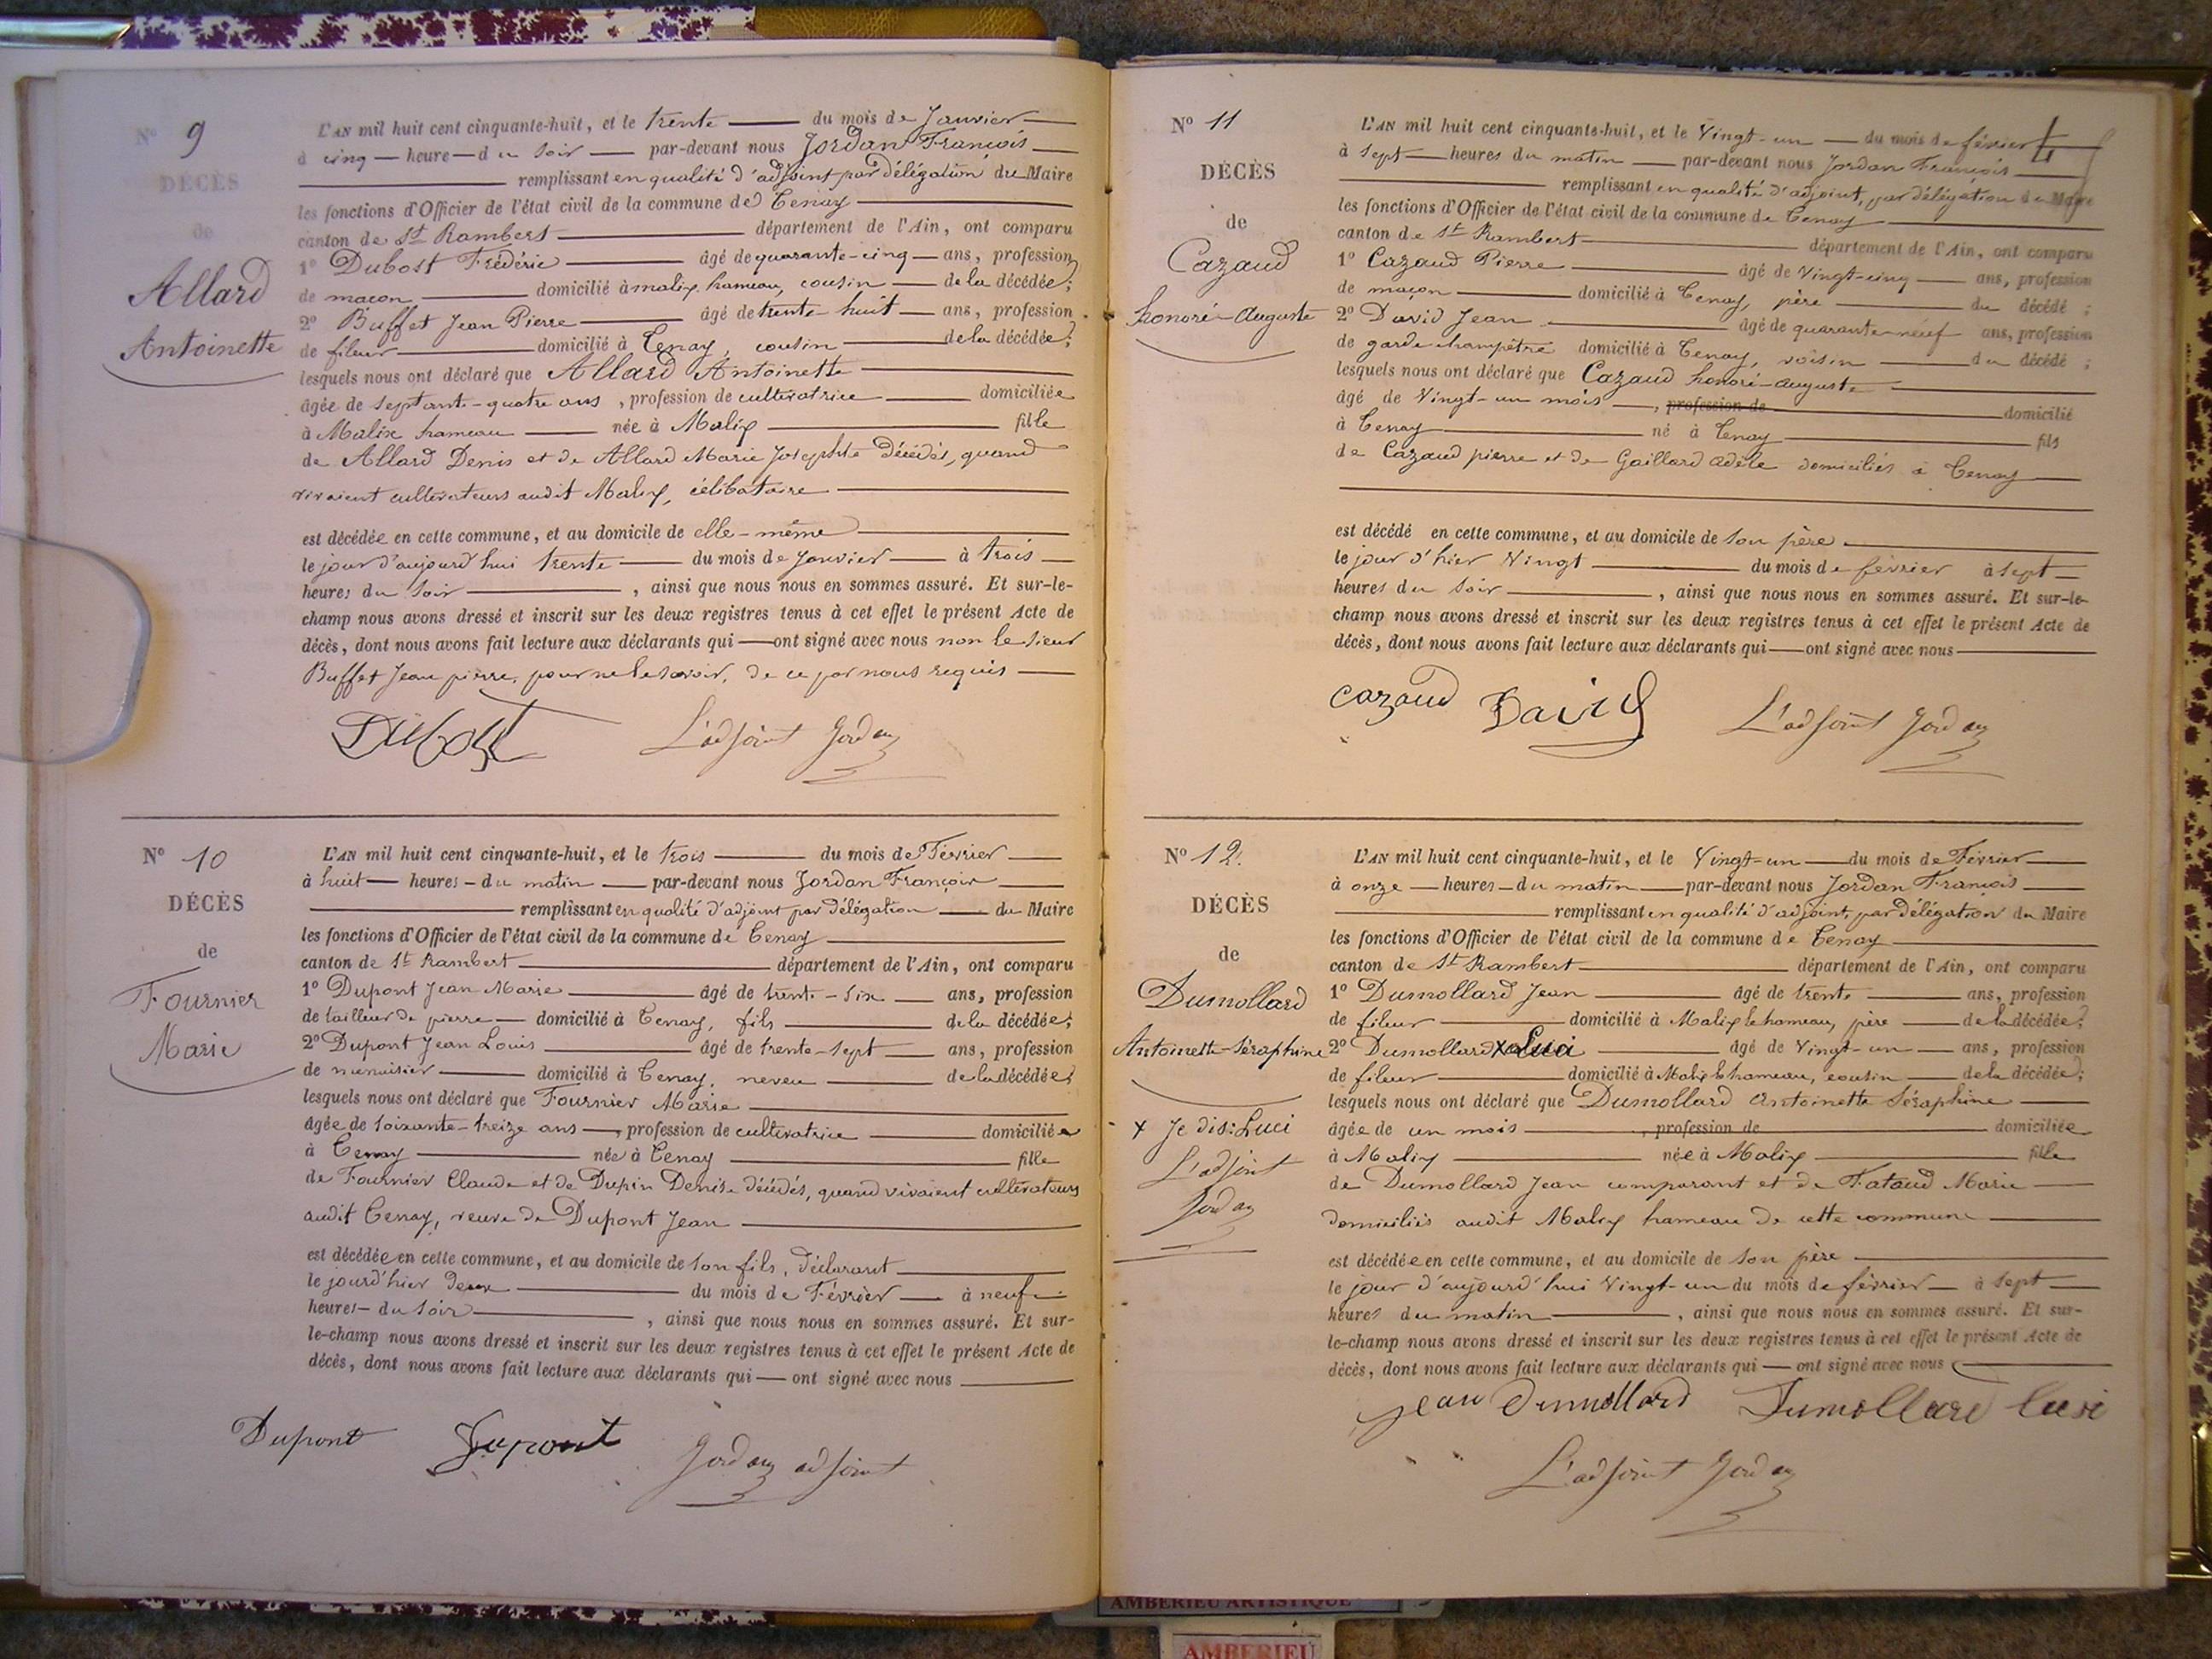 N° 9
DÉCÈS
de
Allard
Antoinette
L'AN mil huit cent cinquante-huit, et le trente du mois de Janvier
à cinq heure du soir par-devant nous Jordan François
remplissant en qualité d'adjoint par délégation du Maire
les fonctions d'Officier de l'état civil de la commune de Tenay
canton de St Rambert département de l'Ain, ont comparu
1° Dubost Frédéric âgé de quarante-cinq ans, profession
de maçon, domicilié à malix hameau, cousin de la décédée;
2° Buffet Jean Pierre âgé de trente-huit ans, profession
de fileur domicilié à Tenay, cousin de la décédée;
lesquels nous ont déclaré que Allard Antoinette
âgée de septante-quatre ans, profession de cultivatrice domiciliée
à Malix hameau née à Malix fille
de Allard Denis et de Allard Marie Josephte décédés, quand
vivaient cultivateurs audit Malix, célibataire
est décédée en cette commune, et au domicile de elle-même
le jour d'aujourd'hui trente du mois de Janvier à trois
heures du soir, ainsi que nous nous en sommes assuré. Et sur-le-
champ nous avons dressé et inscrit sur les deux registres tenus à cet effet le présent Acte de
décès, dont nous avons fait lecture aux déclarants qui ont signé avec nous non le sieur
Buffet Jean pierre, pour ne le savoir, de ce par nous requis
Dubost L'adjoint Jordan
N° 10
DÉCÈS
de
Fournier
Marie
L'AN mil huit cent cinquante-huit, et le trois du mois de Février
à huit heures du matin par-devant nous Jordan François
remplissant en qualité d'adjoint par délégation du Maire
les fonctions d'Officier de l'état civil de la commune de Tenay
canton de St Rambert département de l'Ain, ont comparu
1° Dupont Jean Marie âgé de trente-six ans, profession
de tailleur de pierre domicilié à Tenay, fils de la décédée;
2° Dupont Jean Louis âgé de trente-sept ans, profession
de menuisier domicilié à Tenay, neveu de la décédée;
lesquels nous ont déclaré que Fournier Marie
âgée de soixante-treize ans, profession de cultivatrice domiciliée
à Tenay née à Tenay fille
de Fournier Claude et de Dupin Denise décédés, quand vivaient cultivateurs
audit Tenay, veuve de Dupont Jean
est décédée en cette commune, et au domicile de son fils, déclarant
le jour d'hier deux du mois de Février à neuf
heures du soir, ainsi que nous nous en sommes assuré. Et sur-
le-champ nous avons dressé et inscrit sur les deux registres tenus à cet effet le présent Acte de
décès, dont nous avons fait lecture aux déclarants qui ont signé avec nous
Dupont Dupont Jordan adjoint
N° 11
DÉCÈS
de
Cazaud
honoré-auguste
L'AN mil huit cent cinquante-huit, et le Vingt-un du mois de février
à sept heures du matin par-devant nous Jordan François
remplissant en qualité d'adjoint, par délégation du Maire
les fonctions d'Officier de l'état civil de la commune de Tenay
canton de St Rambert département de l'Ain, ont comparu
1° Cazaud Pierre âgé de Vingt-cinq ans, profession
de maçon domicilié à Tenay, père du décédé;
2° David Jean âgé de quarante-neuf ans, profession
de garde champêtre domicilié à Tenay, voisin du décédé;
lesquels nous ont déclaré que Cazaud honoré-auguste
âgé de Vingt-un mois, profession de domicilié
à Tenay né à Tenay fils
de Cazaud pierre et de Gaillard adèle domiciliés à Tenay
est décédé en cette commune, et au domicile de son père
le jour d'hier Vingt du mois de février à sept
heures du soir, ainsi que nous nous en sommes assuré. Et sur-le-
champ nous avons dressé et inscrit sur les deux registres tenus à cet effet le présent Acte de
décès, dont nous avons fait lecture aux déclarants qui ont signé avec nous
Cazaud David L'adjoint Jordan
N° 12.
DÉCÈS
de
Dumollard
Antoinette-Séraphine
x Je dis: Luci
L'adjoint
Jordan
L'AN mil huit cent cinquante-huit, et le Vingt-un du mois de Février
à onze heures du matin par-devant nous Jordan François
remplissant en qualité d'adjoint, par délégation du Maire
les fonctions d'Officier de l'état civil de la commune de Tenay
canton de St Rambert département de l'Ain, ont comparu
1° Dumollard Jean âgé de trente ans, profession
de fileur domicilié à Malix le hameau, père de la décédée;
2° Dumollard x Luci âgé de Vingt-un ans, profession
de fileur domicilié à Malix le hameau, cousin de la décédée;
lesquels nous ont déclaré que Dumollard Antoinette Séraphine
âgée de un mois, profession de domiciliée
à Malix née à Malix fille
de Dumollard Jean comparant et de Fataud Marie
domiciliés audit Malix hameau de cette commune
est décédée en cette commune, et au domicile de son père
le jour d'aujourd'hui Vingt-un du mois de février à sept
heures du matin, ainsi que nous nous en sommes assuré. Et sur-
le-champ nous avons dressé et inscrit sur les deux registres tenus à cet effet le présent Acte de
décès, dont nous avons fait lecture aux déclarants qui ont signé avec nous
jean Dumollard Dumollard luci
L'adjoint Jordan
AMBERIEU ARTISTIQUE
AMBERIEU